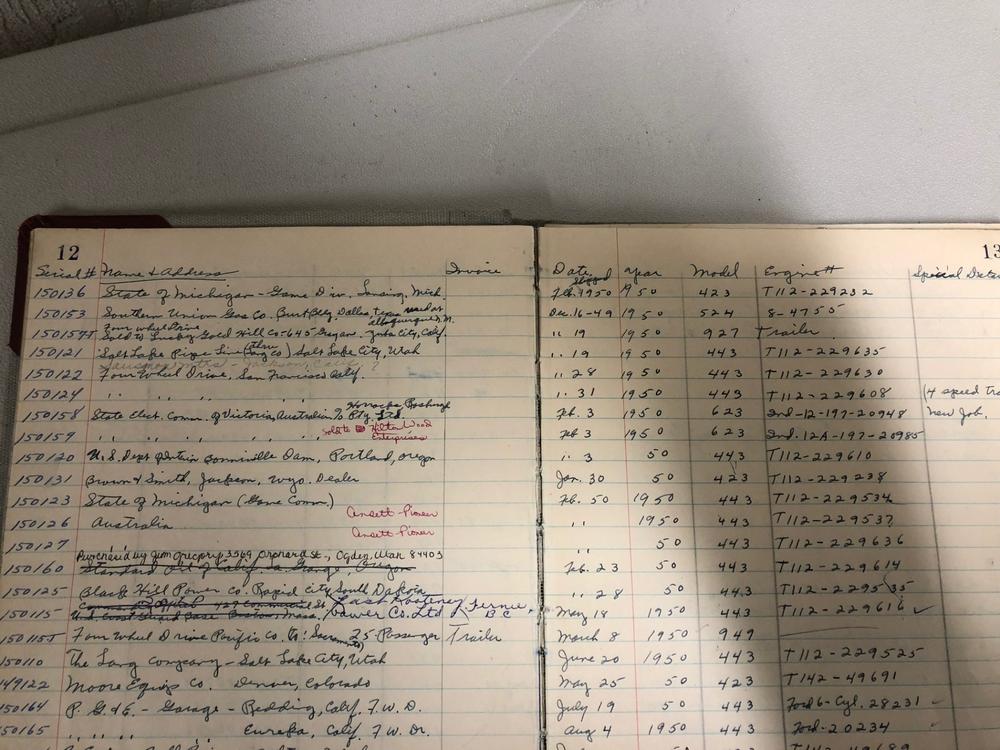 12
13
Serial # Name & Address Invoice Date Shipped Year Model Engine # Special Data
150136 State of Michigan - Game Div. Lansing, Mich. Feb. 1950 1950 423 T112-229232
150153 Southern Union Gas Co. Burt Bldg Dallas Texas used at Albuquerque N.M. Dec. 16-49 1950 524 8-4755
Four Wheel Drive
Sold to Gold Hill Yuba City, Calif. " 19 1950 927 Trailer
150121 Salt Lake Pipe Line (thru Lang Co) Salt Lake City, Utah " 19 1950 443 T112-229635
150122 Four Wheel Drive, San Francisco Calif. " 28 1950 443 T112-229630
150124 " " " " " 31 1950 443 T112-229608 (4 speed
150158 State Elect. Comm. of Victoria, Australia % Pty Ltd. Feb. 3 1950 623 Ind-12-197-20948 New Job.
150159 " " " " " Sold to Hilton Wood Enterprises Feb 3 1950 623 Ind. 12A-197-20985
150120 U.S. Dept of Interior Bonniville Dam, Portland, Oregon " 3 50 443 T112-229610
150131 Brown & Smith, Jackson, Wyo. Dealer Jan. 30 50 423 T112-229238
150123 State of Michigan (Game Comm.) Feb. 50 1950 443 T112-229534
150126 Australia Ansett-Pioneer " 1950 443 T112-229537
150127 " Ansett-Pioneer " 50 443 T112-229636
Purchased by Jim Gregory 3569 Orchard St., Ogden, Utah 84403
150160 Standard Oil of Calif. La Grange Oregon Feb. 23 50 443 T112-229614
150125 Black Hill Power Co. Rapid City South Dakota " 28 50 443 T112-229535
150115 U.S. Coast Guard Base Boston, Mass. East Kootenay Power Co. Ltd Fernie, B.C. May 18 1950 443 T112-229616 ✓
150115T Four Wheel Drive Pacific Co. 25-Passenger Trailer March 8 1950 949
150110 The Lang Company - Salt Lake City, Utah June 20 1950 443 T112-229525
149122 Moore Equip Co. Denver, Colorado May 25 50 423 T142-49691
150164 P. G. & E. - Garage - Redding, Calif. F.W.D. July 19 50 443 Ford 6-Cyl. 28231
150165 " " " " Eureka, Calif. F.W.D. Aug 4 1950 443 Ford-20234